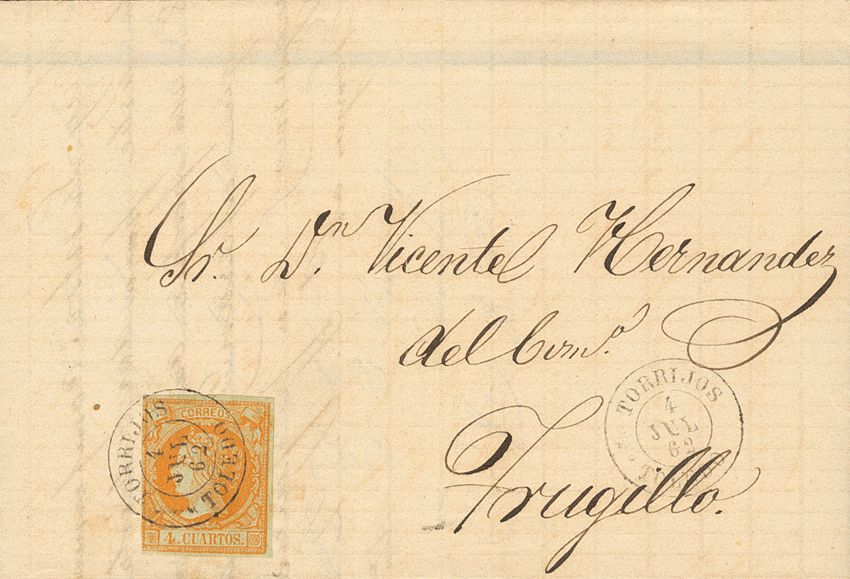 Sr. Dn. Vicente Hernandez
del Comº.
Trugillo.
TORRIJOS
4
JUL
62
TOLEDO
CORREOS
4 CUARTOS.
TORRIJOS
4
JUL
62